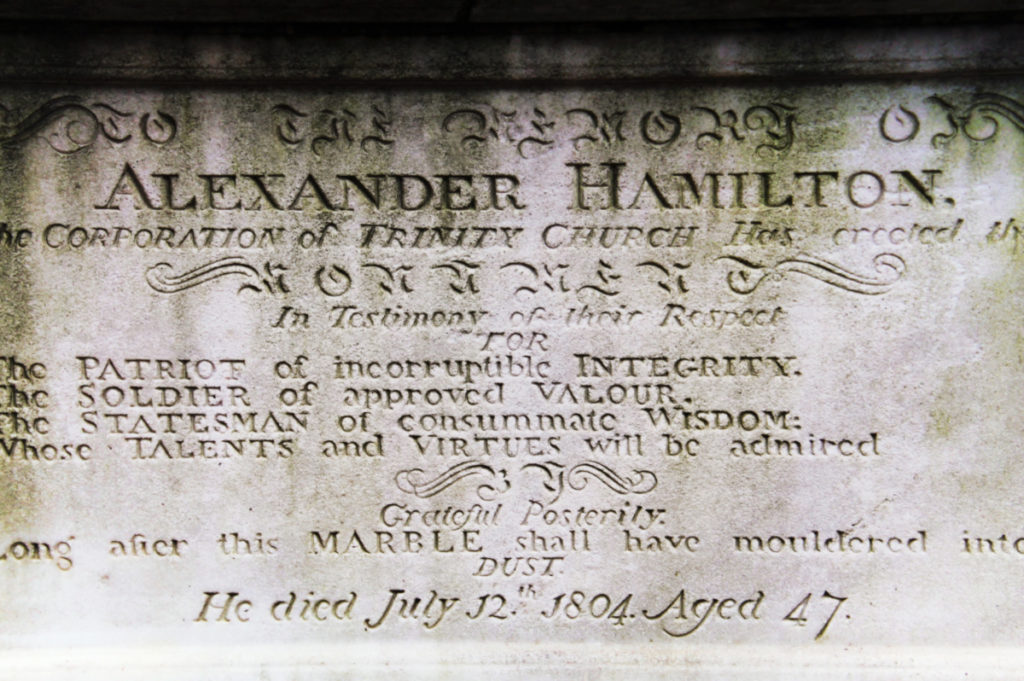 TO THE MEMORY OF
ALEXANDER HAMILTON.
he CORPORATION of TRINITY CHURCH Has erected th
MONUMENT
In Testimony of their Respect
FOR
The PATRIOT of incorruptible INTEGRITY.
The SOLDIER of approved VALOUR.
The STATESMAN of consummate WISDOM:
Whose TALENTS and VIRTUES will be admired
BY
Grateful Posterity.
Long after this MARBLE shall have mouldered into
DUST.
He died July 12.th 1804. Aged 47.